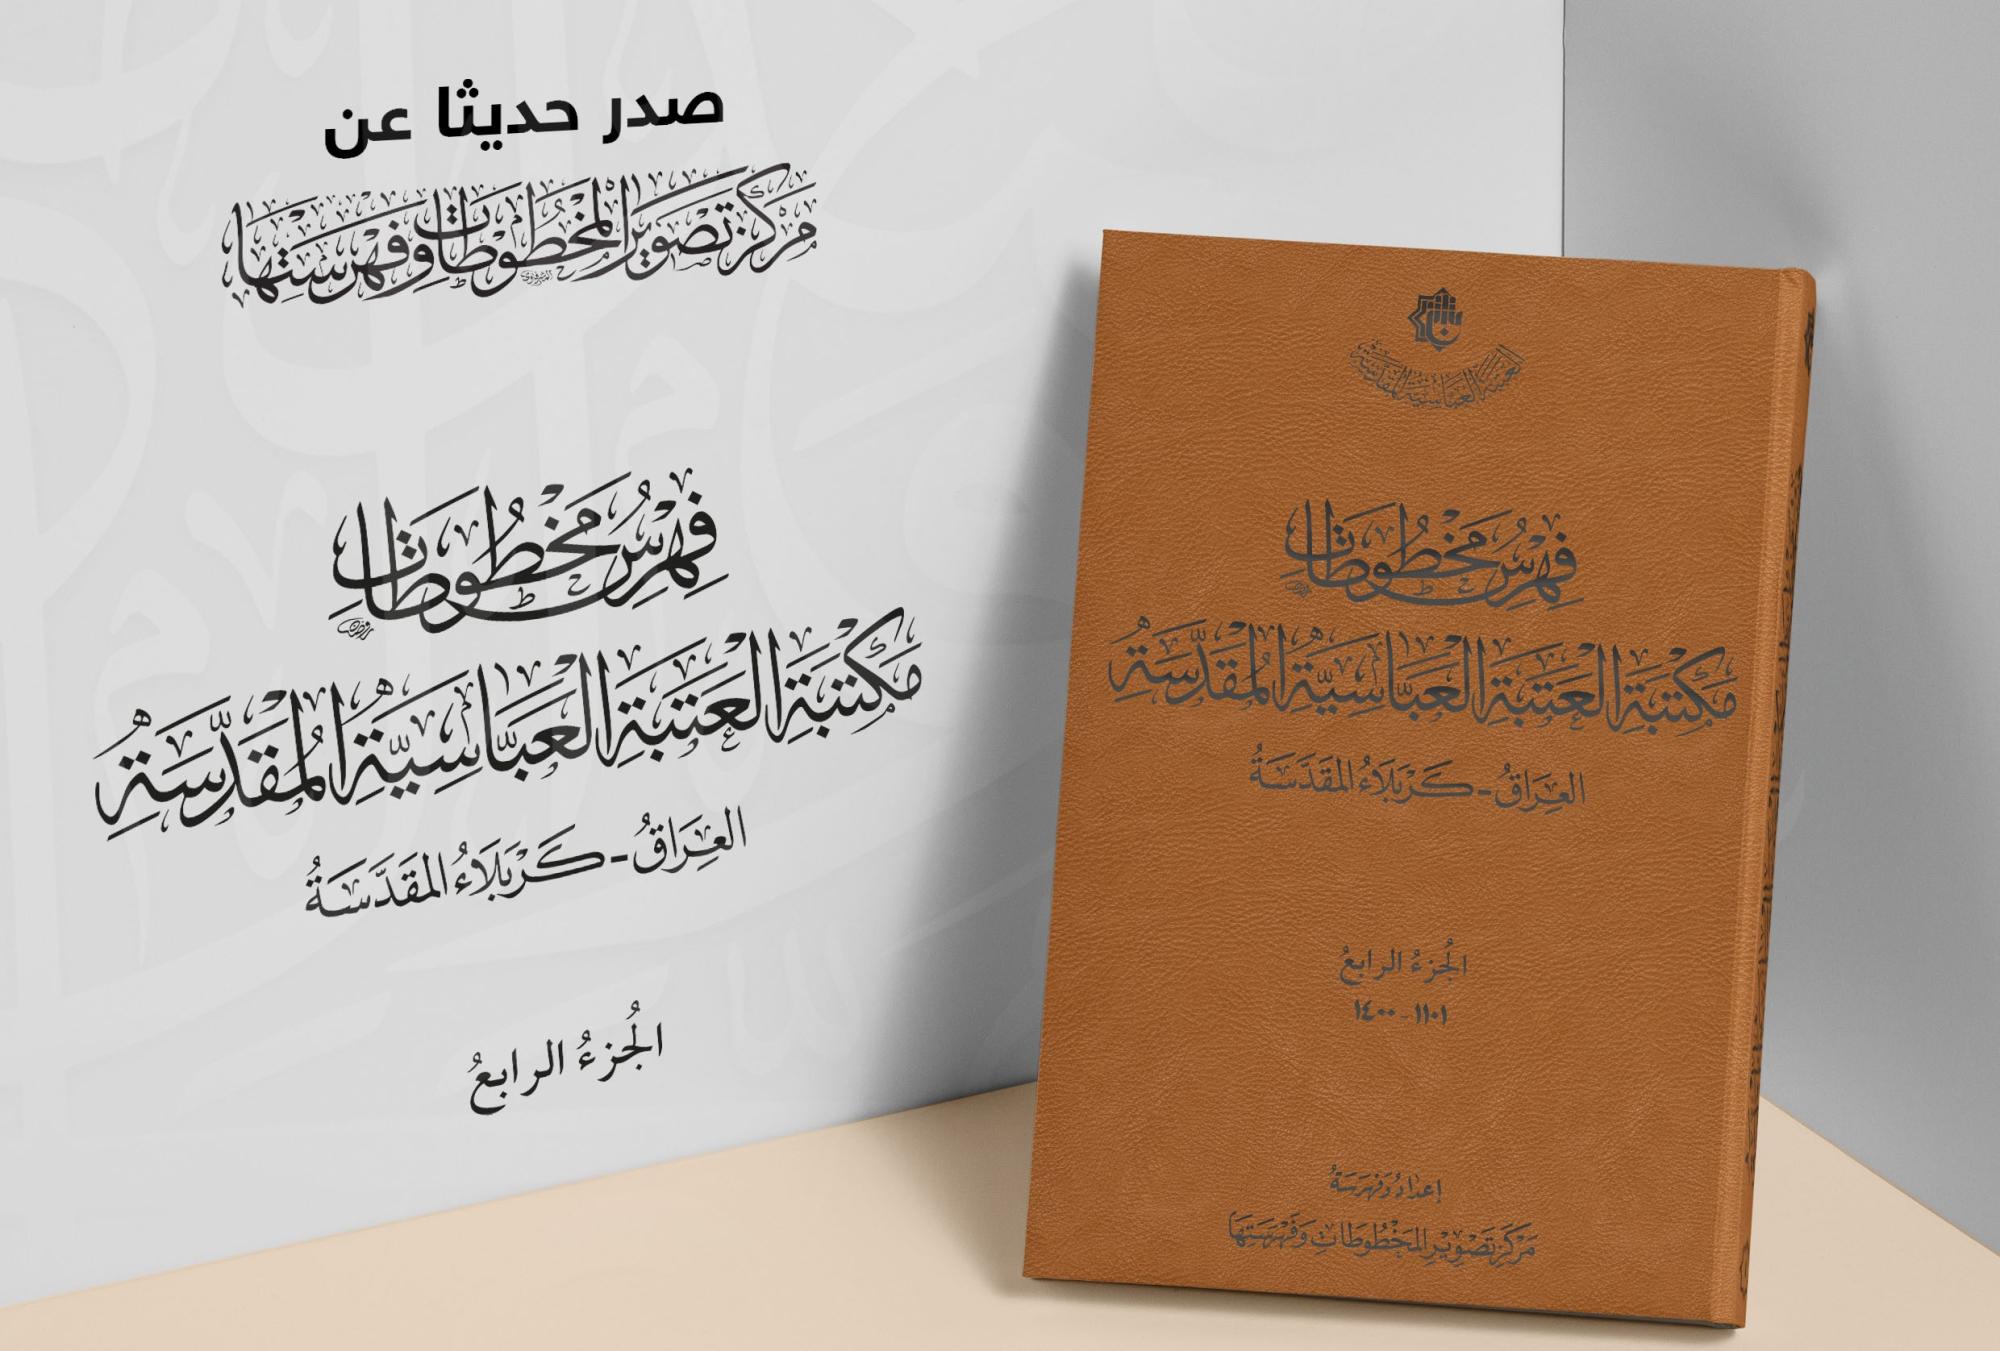 صدر حديثا عن
مركز تصوير المخطوطات وفهرستها
فهرس مخطوطات
مكتبة العتبة العباسية المقدسة
العراق - كربلاء المقدسة
الجزء الرابع
العتبة العباسية المقدسة
فهرس مخطوطات
مكتبة العتبة العباسية المقدسة
العراق - كربلاء المقدسة
الجزء الرابع
١١٠١ - ١٤٠٠
إعداد وفهرسة
مركز تصوير المخطوطات وفهرستها